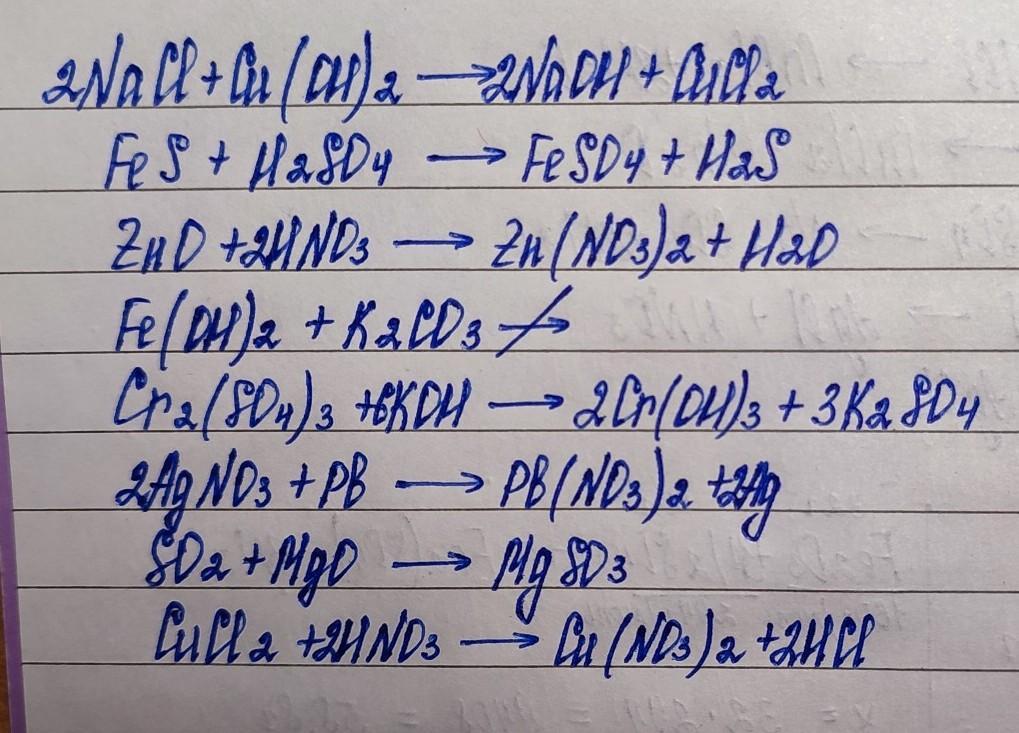 2NaCl + Cu(OH)2 → 2NaOH + CuCl2
FeS + H2SO4 → FeSO4 + H2S
ZnO + 2HNO3 → Zn(NO3)2 + H2O
Fe(OH)2 + K2CO3 ↛
Cr2(SO4)3 + 6KOH → 2Cr(OH)3 + 3K2SO4
2AgNO3 + PB → PB(NO3)2 + 2Ag
SO2 + MgO → MgSO3
CuCl2 + 2HNO3 → Cu(NO3)2 + 2HCl